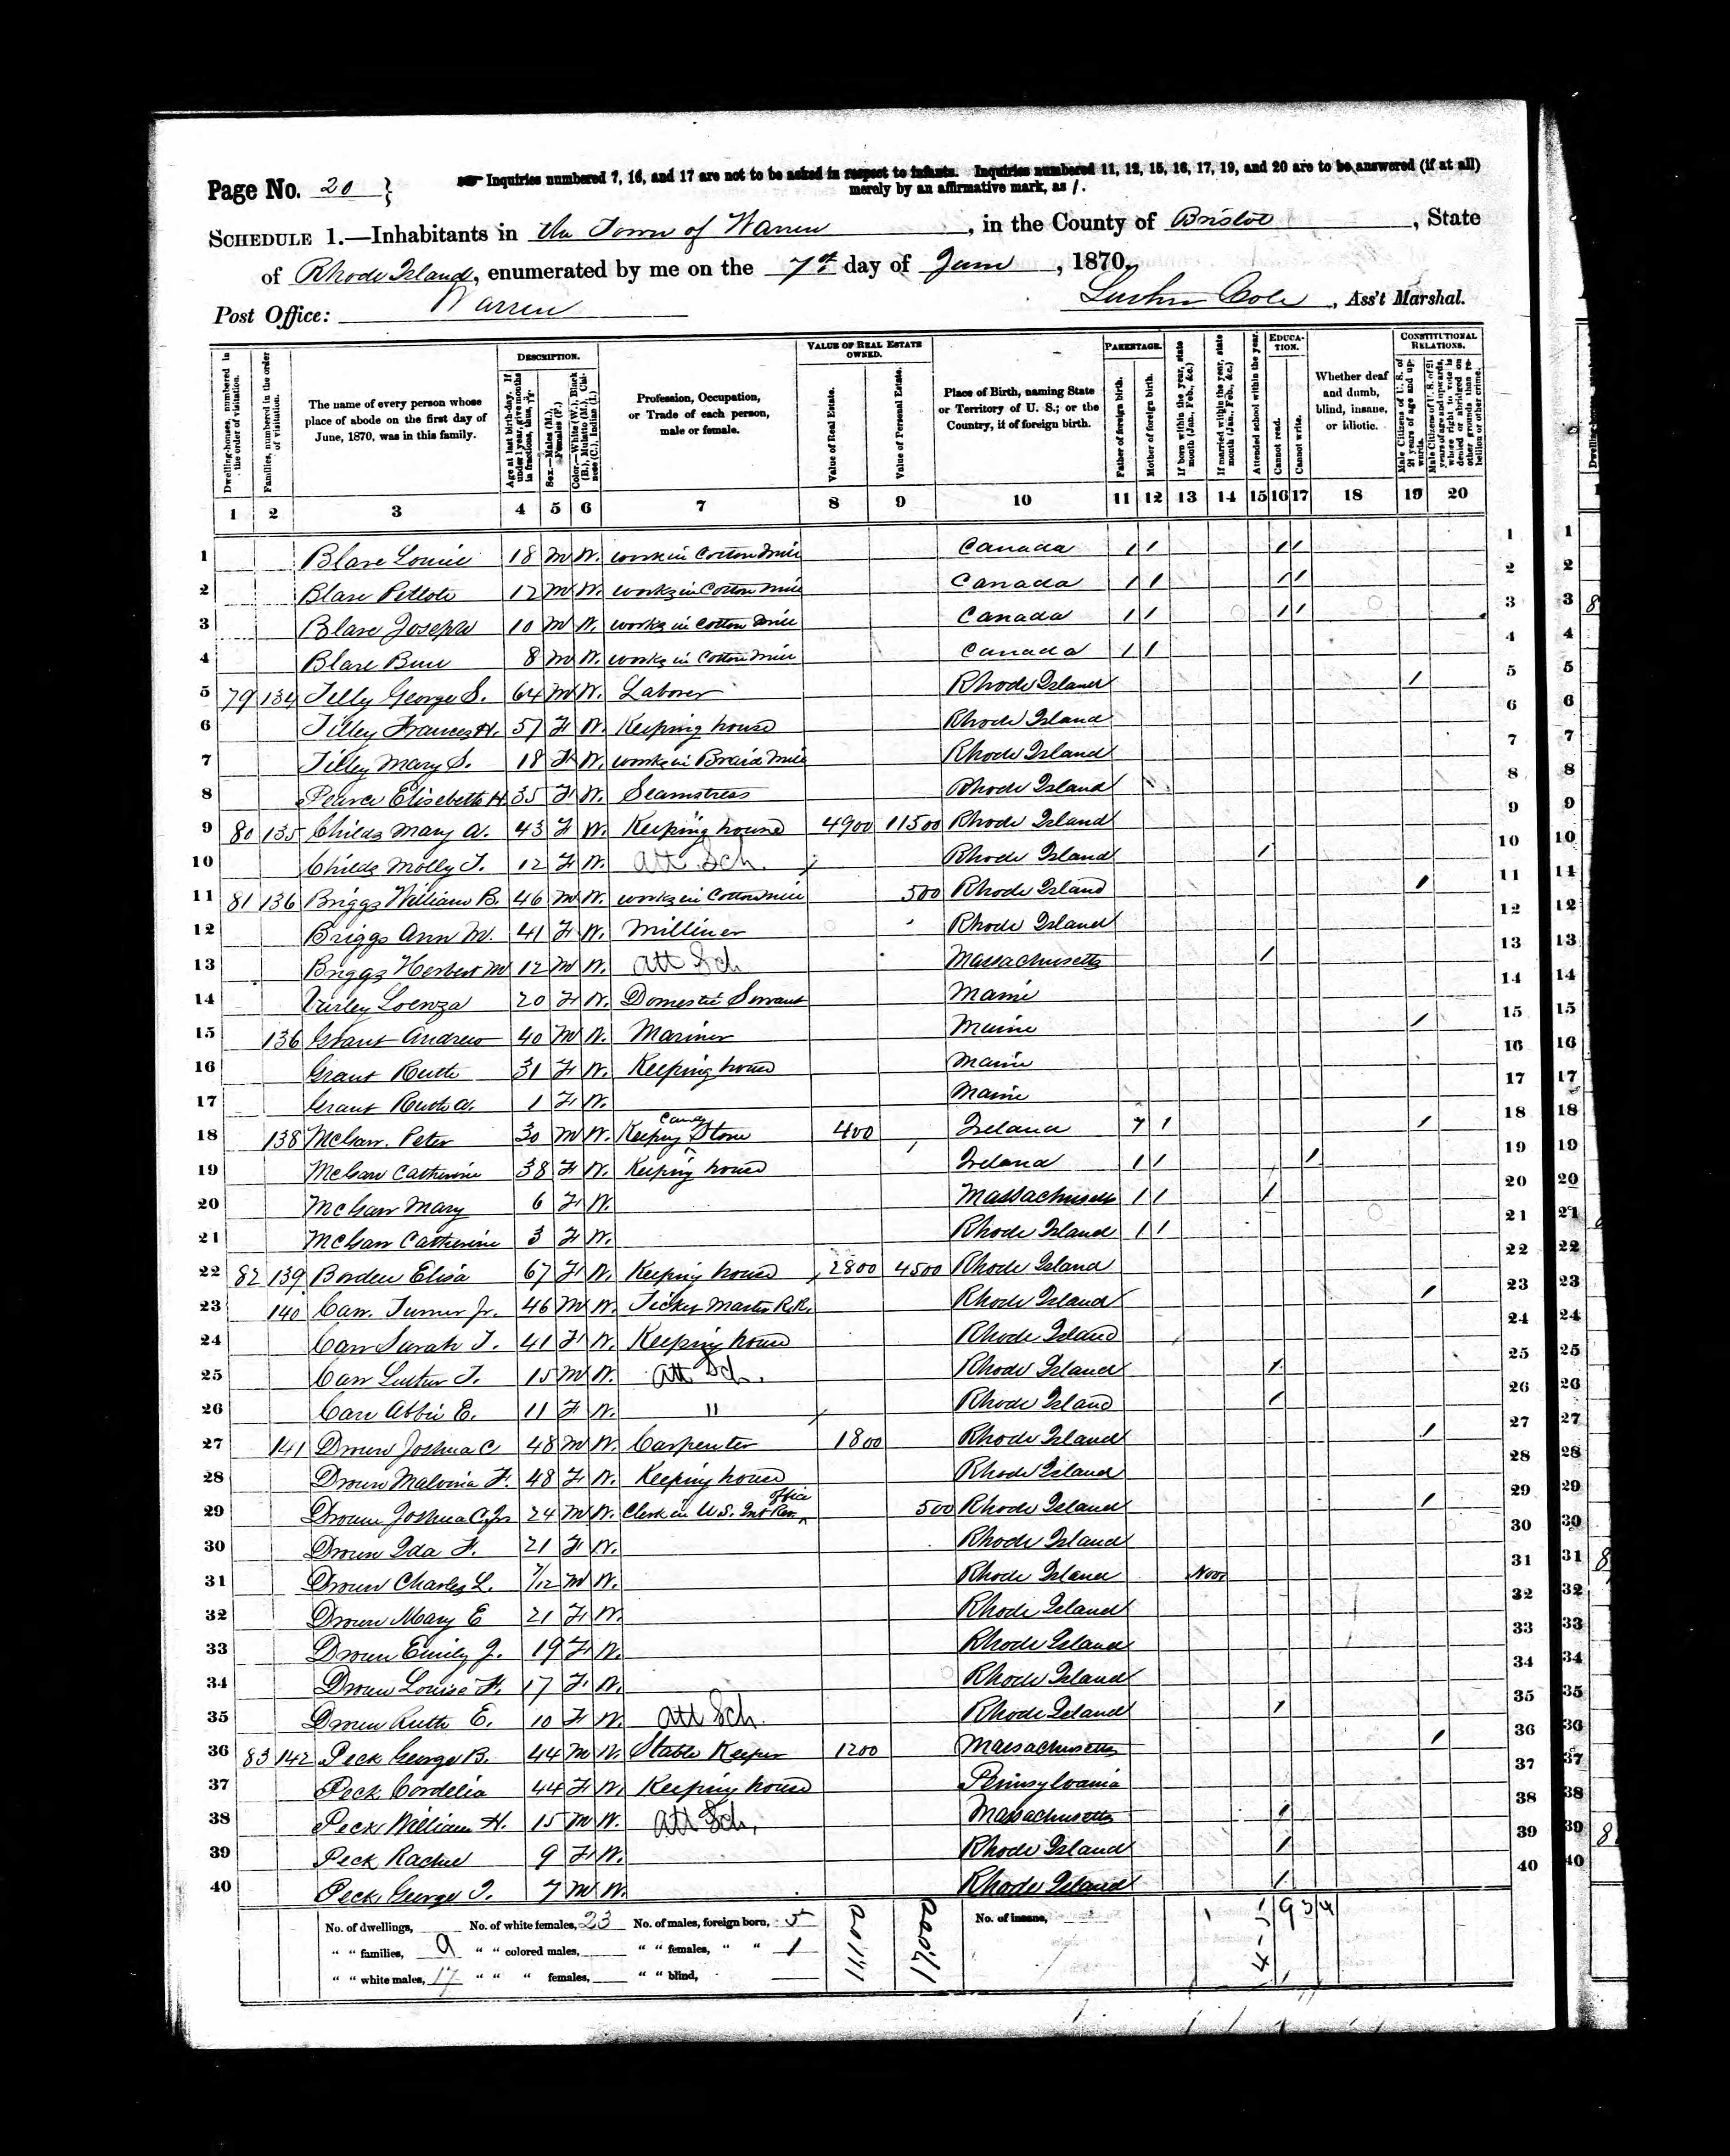 Page No. 20
Inquiries numbered 7, 16, and 17 are not to be asked in respect to infants. Inquiries numbered 11, 12, 15, 16, 17, 19, and 20 are to be answered (if at all)
merely by an affirmative mark, as /.
SCHEDULE 1.—Inhabitants in the Town of Warren, in the County of Bristol, State
of Rhode Island, enumerated by me on the 7th day of June, 1870.
Post Office: Warren
Cole, Ass't Marshal.
Dwelling-houses, numbered in the order of visitation.
Families, numbered in the order of visitation.
The name of every person whose place of abode on the first day of June, 1870, was in this family.
DESCRIPTION.
Age at last birth-day. If under 1 year, give months in fractions, thus, 3/12
Sex.—Males (M.), Females (F.)
Color.—White (W.), Black (B.), Mulatto (M.), Chinese (C.), Indian (I.)
Profession, Occupation, or Trade of each person, male or female.
VALUE OF REAL ESTATE OWNED.
Value of Real Estate.
Value of Personal Estate.
Place of Birth, naming State or Territory of U. S.; or the Country, if of foreign birth.
PARENTAGE.
Father of foreign birth.
Mother of foreign birth.
If born within the year, state month (Jan., Feb., &c.)
If married within the year, state month (Jan., Feb., &c.)
Attended school within the year.
EDUCATION.
Cannot read.
Cannot write.
Whether deaf and dumb, blind, insane, or idiotic.
CONSTITUTIONAL RELATIONS.
Male Citizens of U. S. of 21 years of age and upwards.
Male Citizens of U. S. of 21 years of age and upwards, whose right to vote is denied or abridged on other grounds than rebellion or other crime.
1 2 3 4 5 6 7 8 9 10 11 12 13 14 15 16 17 18 19 20
1 Blase 18 M W. work in Cotton Mill Canada / / / / 1
2 Blase 12 M W. works in Cotton Mill Canada / / / / 2
3 Blase Joseph 10 M W. works in Cotton Mill Canada / / / / 3
4 Blase 8 M W. works in Cotton Mill Canada / / 4
5 79 134 Tilly George S. 64 M W. Laborer Rhode Island / 5
6 Tilley Frances H. 57 F W. Keeping house Rhode Island 6
7 Tilley Mary S. 18 F W. works in Braid Mill Rhode Island 7
8 Pearce Elisebeth H 35 F W. Seamstress Rhode Island 8
9 80 135 Childs Mary A. 43 F W. Keeping house 4900 11500 Rhode Island 9
10 Childs Molly T. 12 F W. Att Sch. Rhode Island / 10
11 81 136 Briggs William B. 46 M W. works in Cotton Mill 500 Rhode Island / 11
12 Briggs Ann M. 41 F W. Milliner Rhode Island 12
13 Briggs Herbert M 12 M W. Att Sch Massachusetts / 13
14 20 F W. Domestic Servant Maine 14
15 136 Grant Andrew 40 M W. Mariner Maine / 15
16 Grant Ruth 31 F W. Keeping house Maine 16
17 Grant Ruth A. 1 F W. Maine 17
18 138 McGaw Peter 30 M W. Keeping Candy Store 400 Ireland / / / 18
19 McGaw Catherine 38 F W. Keeping house Ireland / / / 19
20 McGaw Mary 6 F W. Massachusetts / / / 20
21 McGaw Catherine 3 F W. Rhode Island / / 21
22 82 139 Borden Elisa 67 F W. Keeping house 2800 4500 Rhode Island 22
23 140 Carr Turner Jr. 46 M W. Ticket Master R.R. Rhode Island / 23
24 Carr Sarah T. 41 F W. Keeping house Rhode Island 24
25 Carr Luther T. 15 M W. Att Sch. Rhode Island / 25
26 Carr Abbie E. 11 F W. " Rhode Island / 26
27 141 Drown Joshua C 48 M W. Carpenter 1800 Rhode Island / 27
28 Drown Malvina F. 48 F W. Keeping house Rhode Island 28
29 Drown Joshua C. Jr 24 M W. Clerk in U.S. Int Rev. office 500 Rhode Island / 29
30 Drown Ida F. 21 F W. Rhode Island 30
31 Drown Charles L. 7/12 M W. Rhode Island Nov. 31
32 Drown Mary E 21 F W. Rhode Island 32
33 Drown Emily J. 19 F W. Rhode Island 33
34 Drown Louisa F. 17 F W. Rhode Island 34
35 Drown Ruth E. 10 F W. Att Sch. Rhode Island / 35
36 83 142 Peck George B. 44 M W. Stable Keeper 1200 Massachusetts / 36
37 Peck Cordelia 44 F W. Keeping house Pennsylvania 37
38 Peck William H. 15 M W. Att Sch. Massachusetts / 38
39 Peck Rachel 9 F W. Rhode Island / 39
40 Peck George T. 7 M W. Rhode Island / 40
No. of dwellings, No. of white females, 23 No. of males, foreign born, 5 No. of insane,
" " families, 9 " " colored males, " " females, " " 1
" " white males, 17 " " " females, " " blind,
11,100 17,000
9 3 4